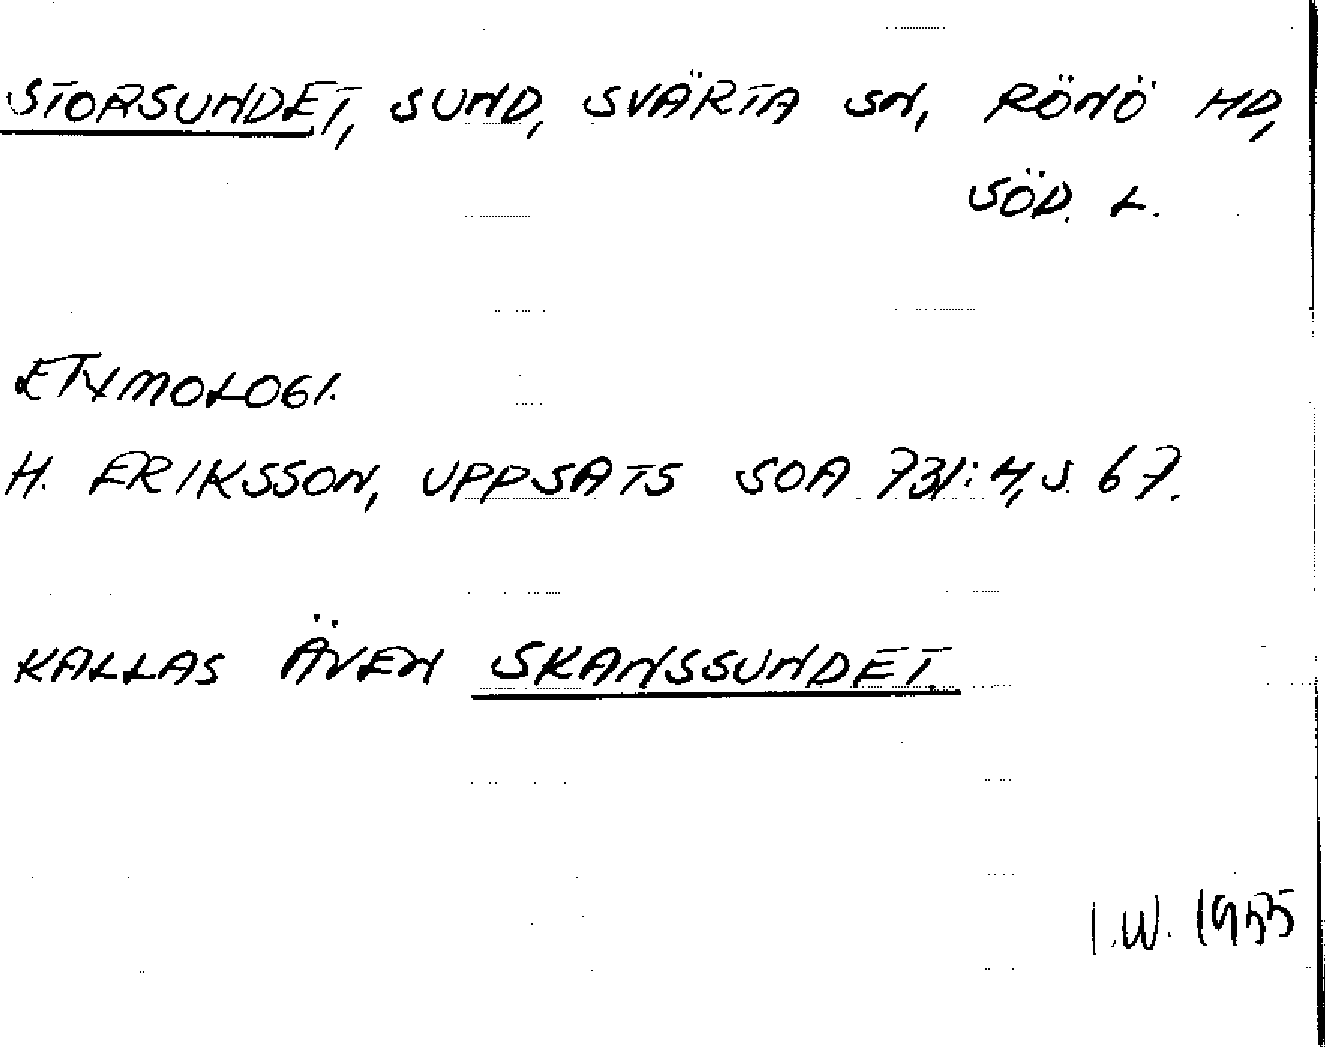 STORSUNDET, SUND, SVÄRTA SN, RÖNÖ HD,
SÖD. L.
ETYMOLOGI.
H. ERIKSSON, UPPSATS SOA 731:4, S. 67.
KALLAS ÄVEN SKANSSUNDET.
I.W. 1955